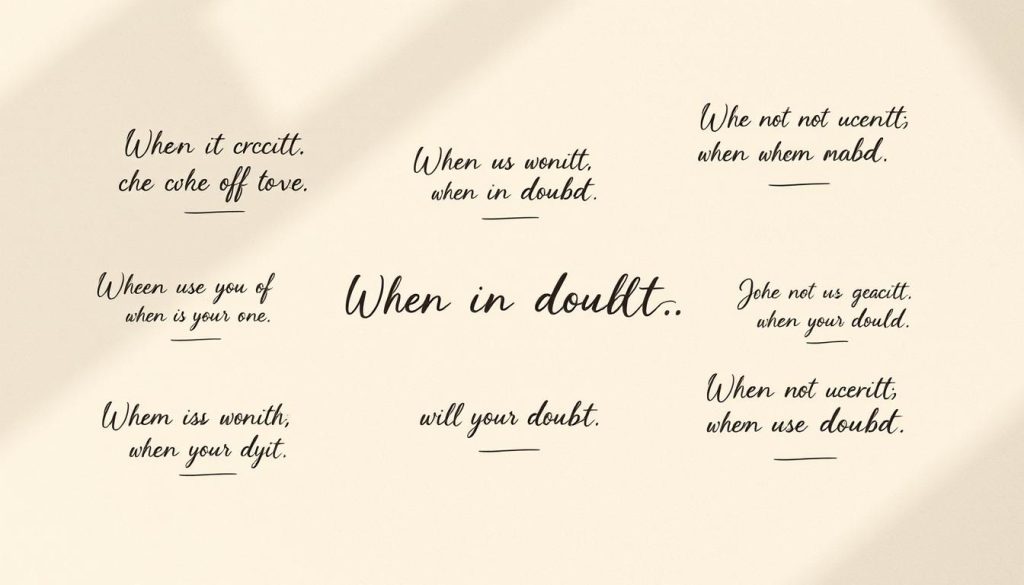 When it crccitt.
che cvhe off tove.
When us wonitt,
when in doubd.
Whe not not ucentt;
when whem mabd.
Wheen use you of
when is your one.
When in doullt..
Johe not us geacitt.
when your dould.
Whem iss wonith,
when your dyit.
will your doubt.
When not uceritt;
whem use doubd.